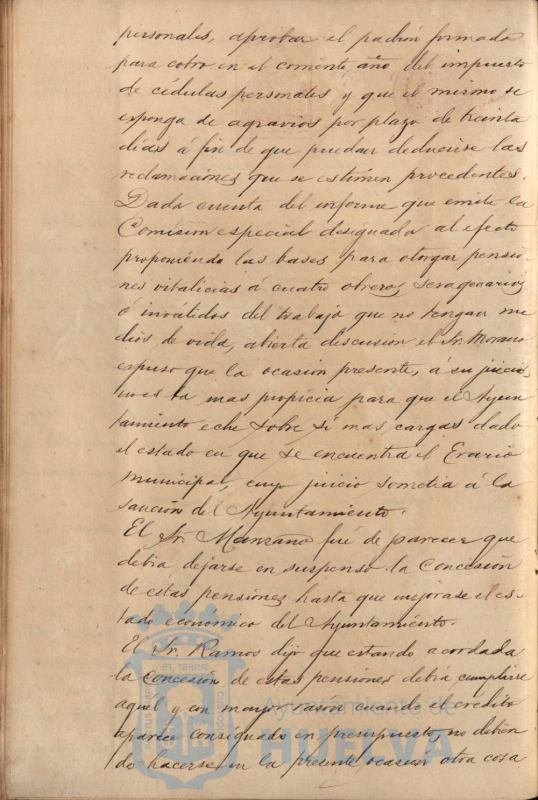 personales, aprobar el padrón formado
para cobro en el corriente año del impuesto
de cédulas personales y que el mismo se
esponga de agravios por plazo de treinta
dias á fin de que puedan deducirse las
reclamaciones que se estimen procedentes.
Dada cuenta del informe que emite la
Comision especial designada al efecto
proponiendo las bases para otorgar pensio
nes vitalicias á cuatro obreros sexagenarios
ó inválidos del trabajo que no tengan me
dios de vida, abierta discusion el Sr. Morano
espuso que la ocasion presente, á su juicio,
no es la mas propicia para que el Ayun
tamiento eche sobre si mas cargas dado
el estado en que se encuentra el Erario
municipal, cuyo juicio sometia á la
sancion del Ayuntamiento.
El Sr. Manzano fue de parecer que
debia dejarse en suspenso la Concesión
de estas pensiones hasta que mejorase el es-
tado económico del Ayuntamiento.
El Sr. Ramos dijo que estando acordada
la Concesión de estas pensiones debia cumplirse
aquel y con mayor razón cuando el crédito
aparece consignado en presupuesto, no debien
do hacerse en la presente ocasión otra cosa
Ayuntamiento de
HUELVA